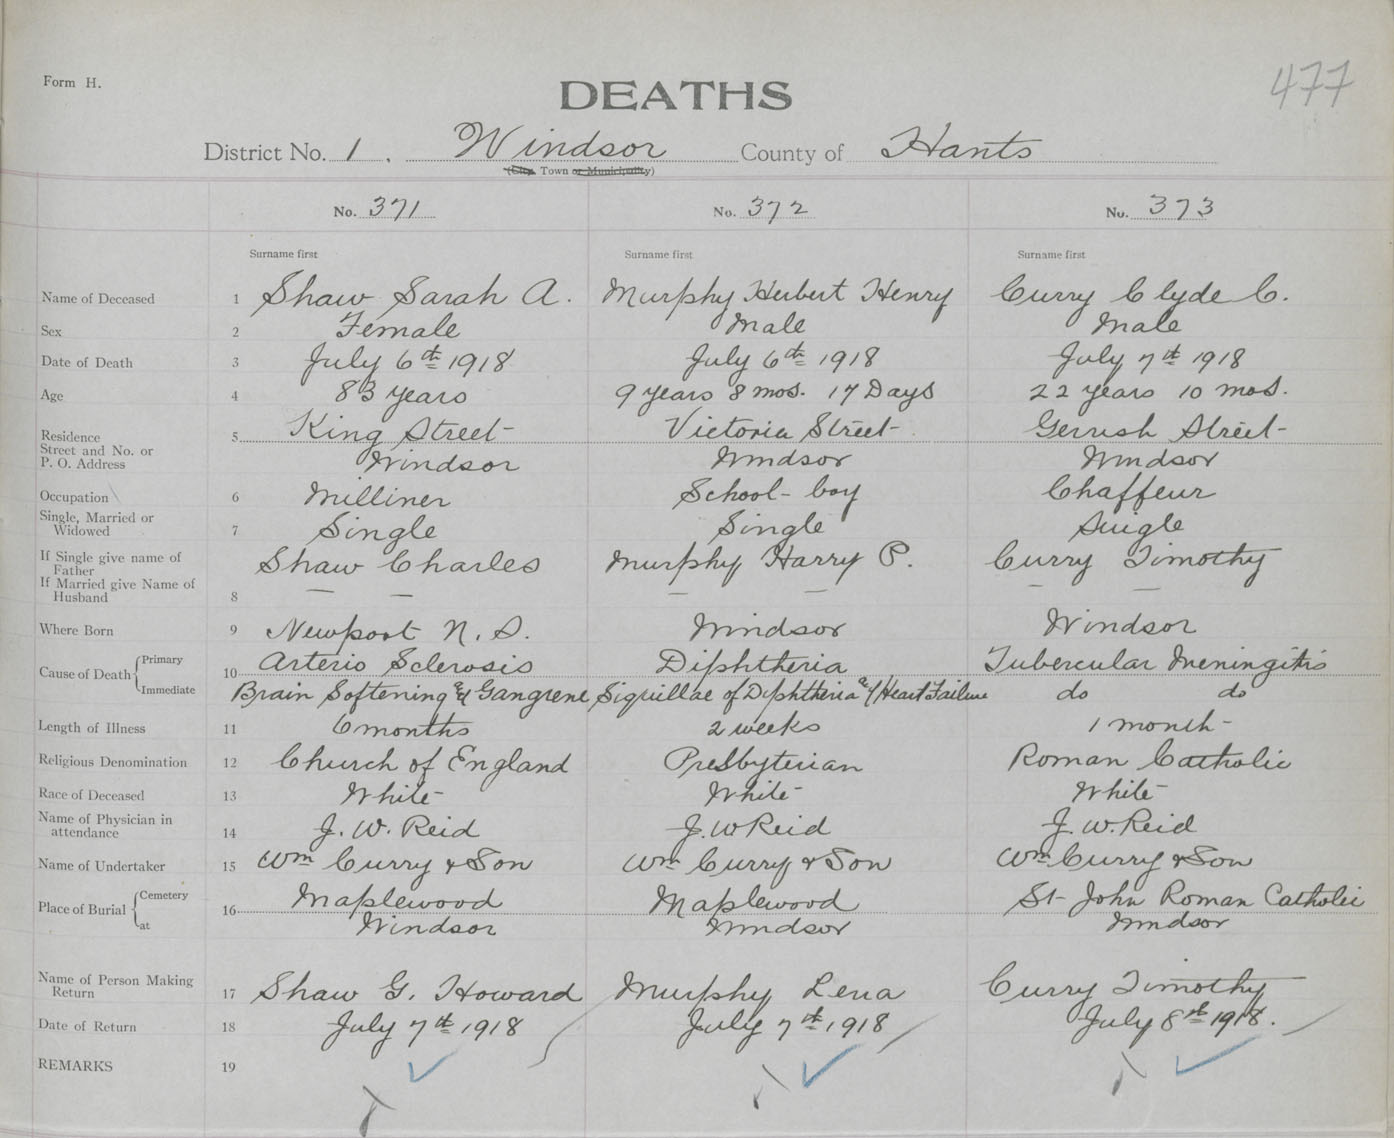 Form H.
477
DEATHS
District No. 1, Windsor County of Hants
(City, Town or Municipality)
No. 371 No. 372 No. 373
Surname first Surname first Surname first
Name of Deceased 1 Shaw Sarah A. Murphy Herbert Henry Curry Clyde C.
Sex 2 Female Male Male
Date of Death 3 July 6th 1918 July 6th 1918 July 7th 1918
Age 4 83 years 9 years 8 mos. 17 Days 22 years 10 mos.
Residence
Street and No. or 5 King Street Victoria Street Gerrish Street
P. O. Address Windsor Windsor Windsor
Occupation 6 Milliner School-boy Chaffeur
Single, Married or
Widowed 7 Single Single Single
If Single give name of
Father Shaw Charles Murphy Harry P. Curry Timothy
If Married give Name of
Husband 8 — — — — — —
Where Born 9 Newport N.S. Windsor Windsor
Cause of Death { Primary 10 Arterio Sclerosis Diphtheria Tubercular Meningitis
Immediate Brain Softening & Gangrene Siquillae of Diphtheria & Heart Failure do do
Length of Illness 11 6 months 2 weeks 1 month
Religious Denomination 12 Church of England Presbyterian Roman Catholic
Race of Deceased 13 White White White
Name of Physician in
attendance 14 J. W. Reid J. W Reid J. W. Reid
Name of Undertaker 15 Wm Curry & Son Wm Curry & Son Wm Curry & Son
Place of Burial { Cemetery 16 Maplewood Maplewood St John Roman Catholic
at Windsor Windsor Windsor
Name of Person Making
Return 17 Shaw G. Howard Murphy Lena Curry Timothy
Date of Return 18 July 7th 1918 July 7th 1918 July 8th 1918.
REMARKS 19